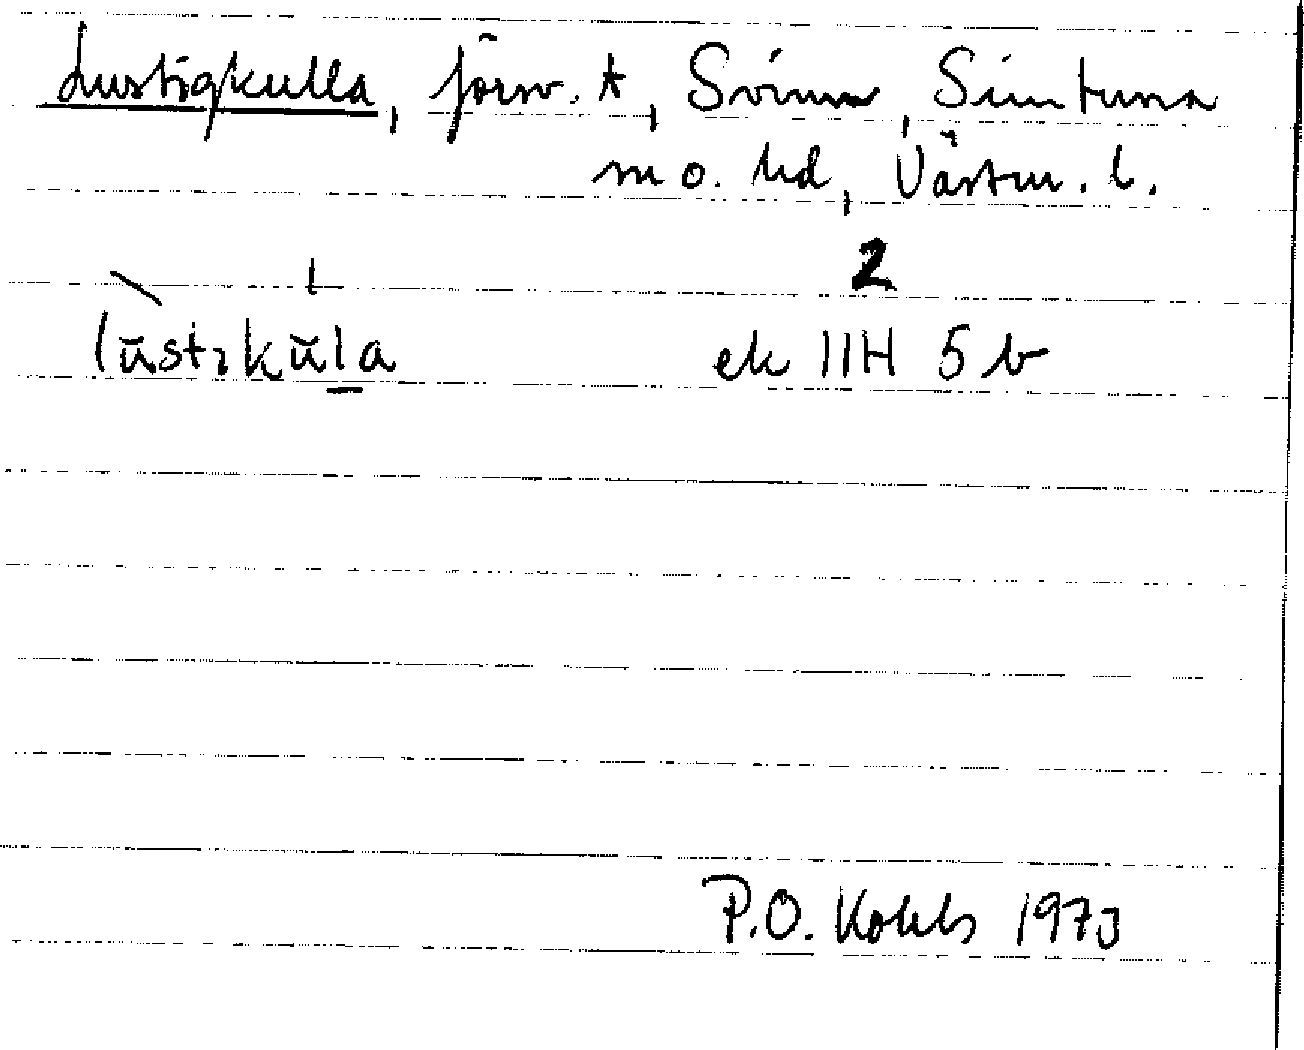 Lustigkulla, försv. t, Svinn, Simtuna
sn o. hd, Västm. l.
2
lüstɩkŭla ek 11H 5b
P.O. Kohls 1973